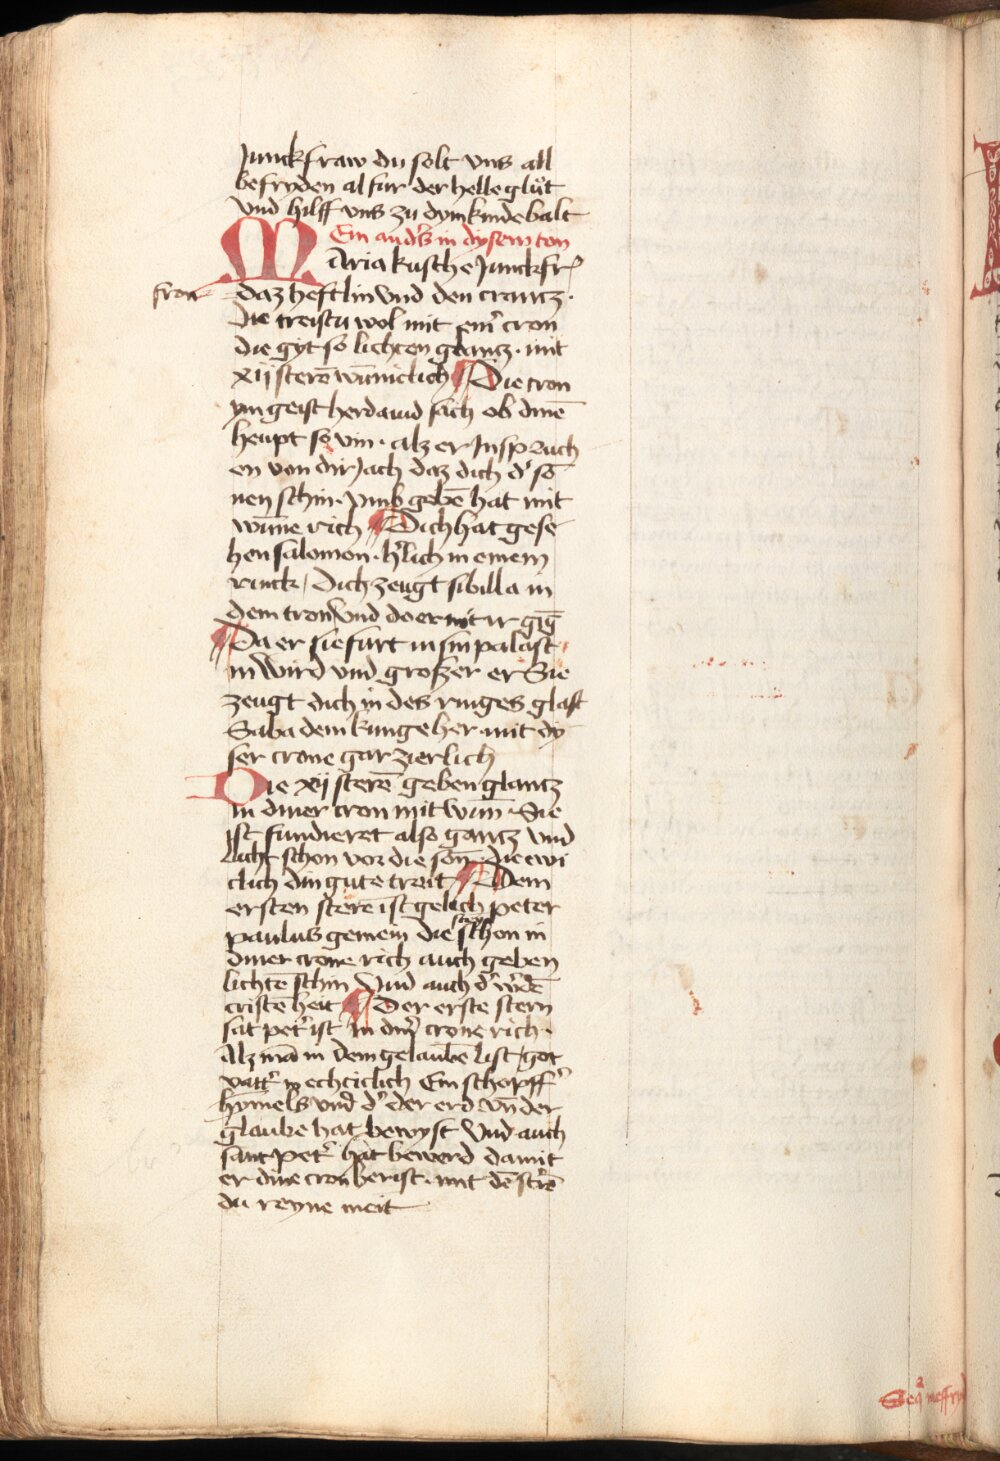 Junckfraw du solt vns all
befryden al fur der helle glůt
vnd hilff vns zu dym kinde balt
Ein anders in dysem ton
Maria kusche Junckfr
fron
daz heftlin vnd den crantz ·
Die treistu wol mit eim cron
die gyt so lichten glantz · mit
xij sterē wūniclich Die cron
ym geist her dauid sach ob dinē
heupt so vin · alz er In sprach
en von dir Jach daz dich d' sō
nen schin · vmb gebē hat mit
wūne rich Dich hat gese
hen salomon · h'lich in einem
rinck / Dich zeugt sibilla in
dem tron vnd do er mit ir gīg
Da er sie furt in sin palast
in wird vnd groszer er Sie
zeugt dich in des ringes glast
Saba dem kunge her · mit dy
ser crone gar zierlich
Die xij sterē geben glantz
in diner cron mit wūn · Sie
ist fundieret also gantz vnd
licht schon vor die sōn · die ewi
clich din gute treit Dem
ersten sterē ist gelich peter
paulus gemein die schon in
diner crone rich auch geben
lichtē schin Vnd auch d' w'dē
cristēheit Der erste stern
sāt pet' ist in din' crone rich ·
Alz mā in dem gelaubē list / got
vatt' mechticlich Ein schopff'
hymels vnd d' der erd vn der
glaube hat bewyst Vnd auch
sant pet' hat bewerd damit
er dine cron berist · mit dē st'rē
du reyne meit